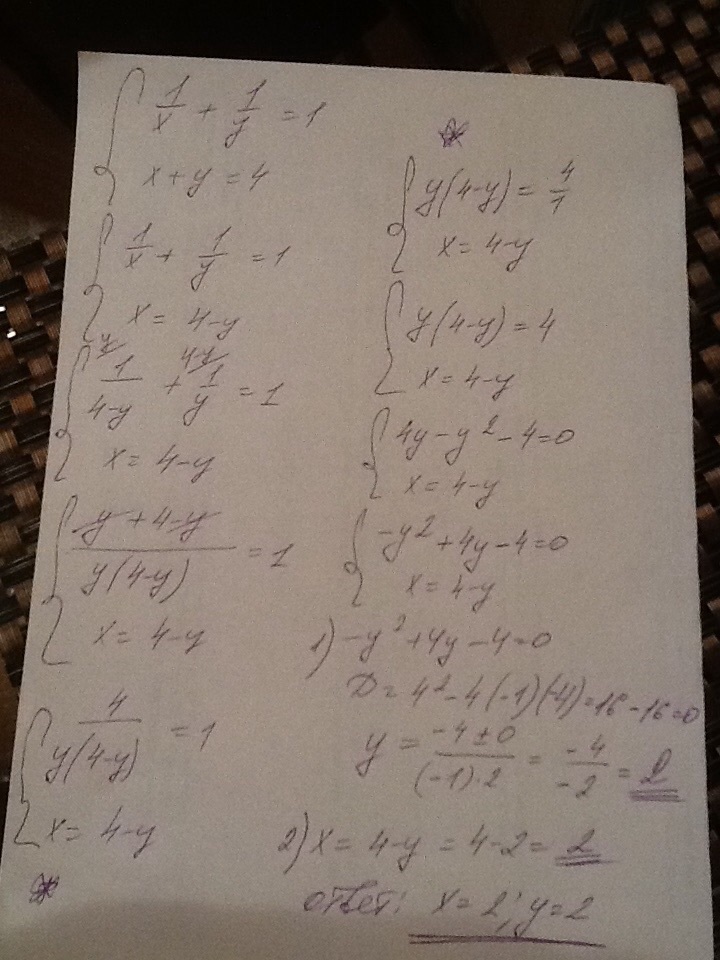 { 1/x + 1/y = 1
x + y = 4
{ 1/x + 1/y = 1
x = 4-y
{ 1/(4-y) + 1/y = 1
y 4-y
x = 4-y
{ (y + 4-y)/(y(4-y)) = 1
x = 4-y
{ 4/(y(4-y)) = 1
x = 4-y
*
*
{ y(4-y) = 4/1
x = 4-y
{ y(4-y) = 4
x = 4-y
{ 4y - y² - 4 = 0
x = 4-y
{ -y² + 4y - 4 = 0
x = 4-y
1) -y² + 4y - 4 = 0
D = 4² - 4(-1)(-4) = 16 - 16 = 0
y = (-4 ± 0)/((-1)·2) = -4/-2 = 2
2) x = 4-y = 4-2 = 2
ответ: x = 2; y = 2